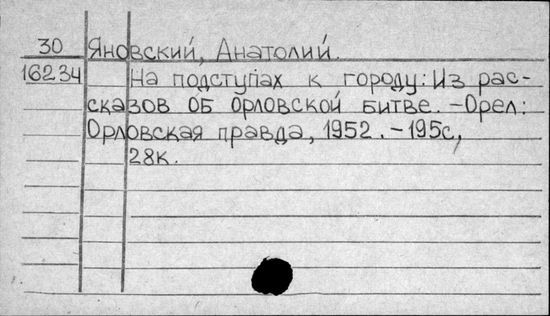 30 Яновский, Анатолий.
16234 На подступах к городу: Из рас-
сказов об Орловской битве. - Орел:
Орловская правда, 1952. - 195с,
28к.